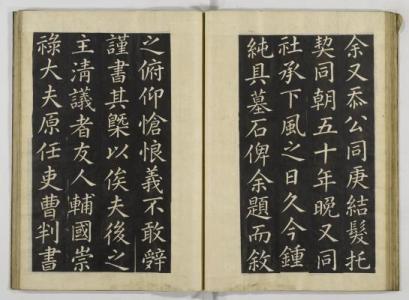 余又忝公同庚結髮托
契同朝五十年晩又同
社承下風之日久今鍾
純具墓石俾余題而敘
之俯仰愴悢義不敢辭
謹書其槩以俟夫後之
主淸議者友人輔國崇
祿大夫原任吏曹判書